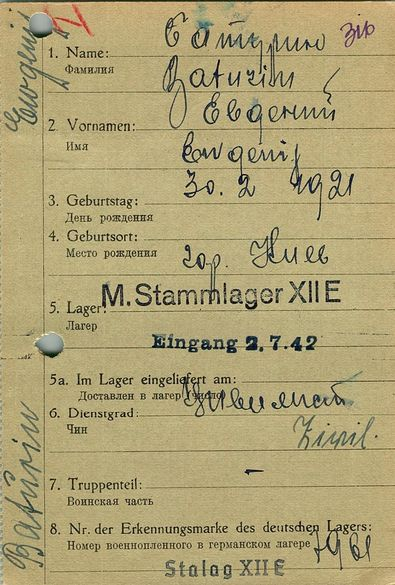 Батурин
1. Name:
Фамилия
Baturin
Евгений
2. Vornamen:
Имя
Eugenij
30. 2 1921
3. Geburtstag:
День рождения
4. Geburtsort:
Место рождения
гор. Киев
M. Stammlager XII E
5. Lager:
Лагер
Eingang 2.7.42
5a. Im Lager eingeliefert am:
Доставлен в лагер (число)
6. Dienstgrad:
Чин
Zivil.
7. Truppenteil:
Воинская часть
8. Nr. der Erkennungsmarke des deutschen Lagers:
Номер военнопленного в германском лагере
7961
Stalag XII E
Baturin